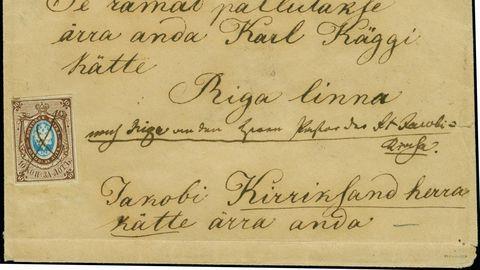 Se ramat pallutakse
ärra anda Karl Käggi
kätte
Riga linna
nach Riga an den Herrn Pastor der St. Jacobi-
Kirche.
Jakobi Kirriksand herra
kätte ärra anda
10 КОП. ЗА ЛОТЪ.